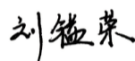 刘镒荣